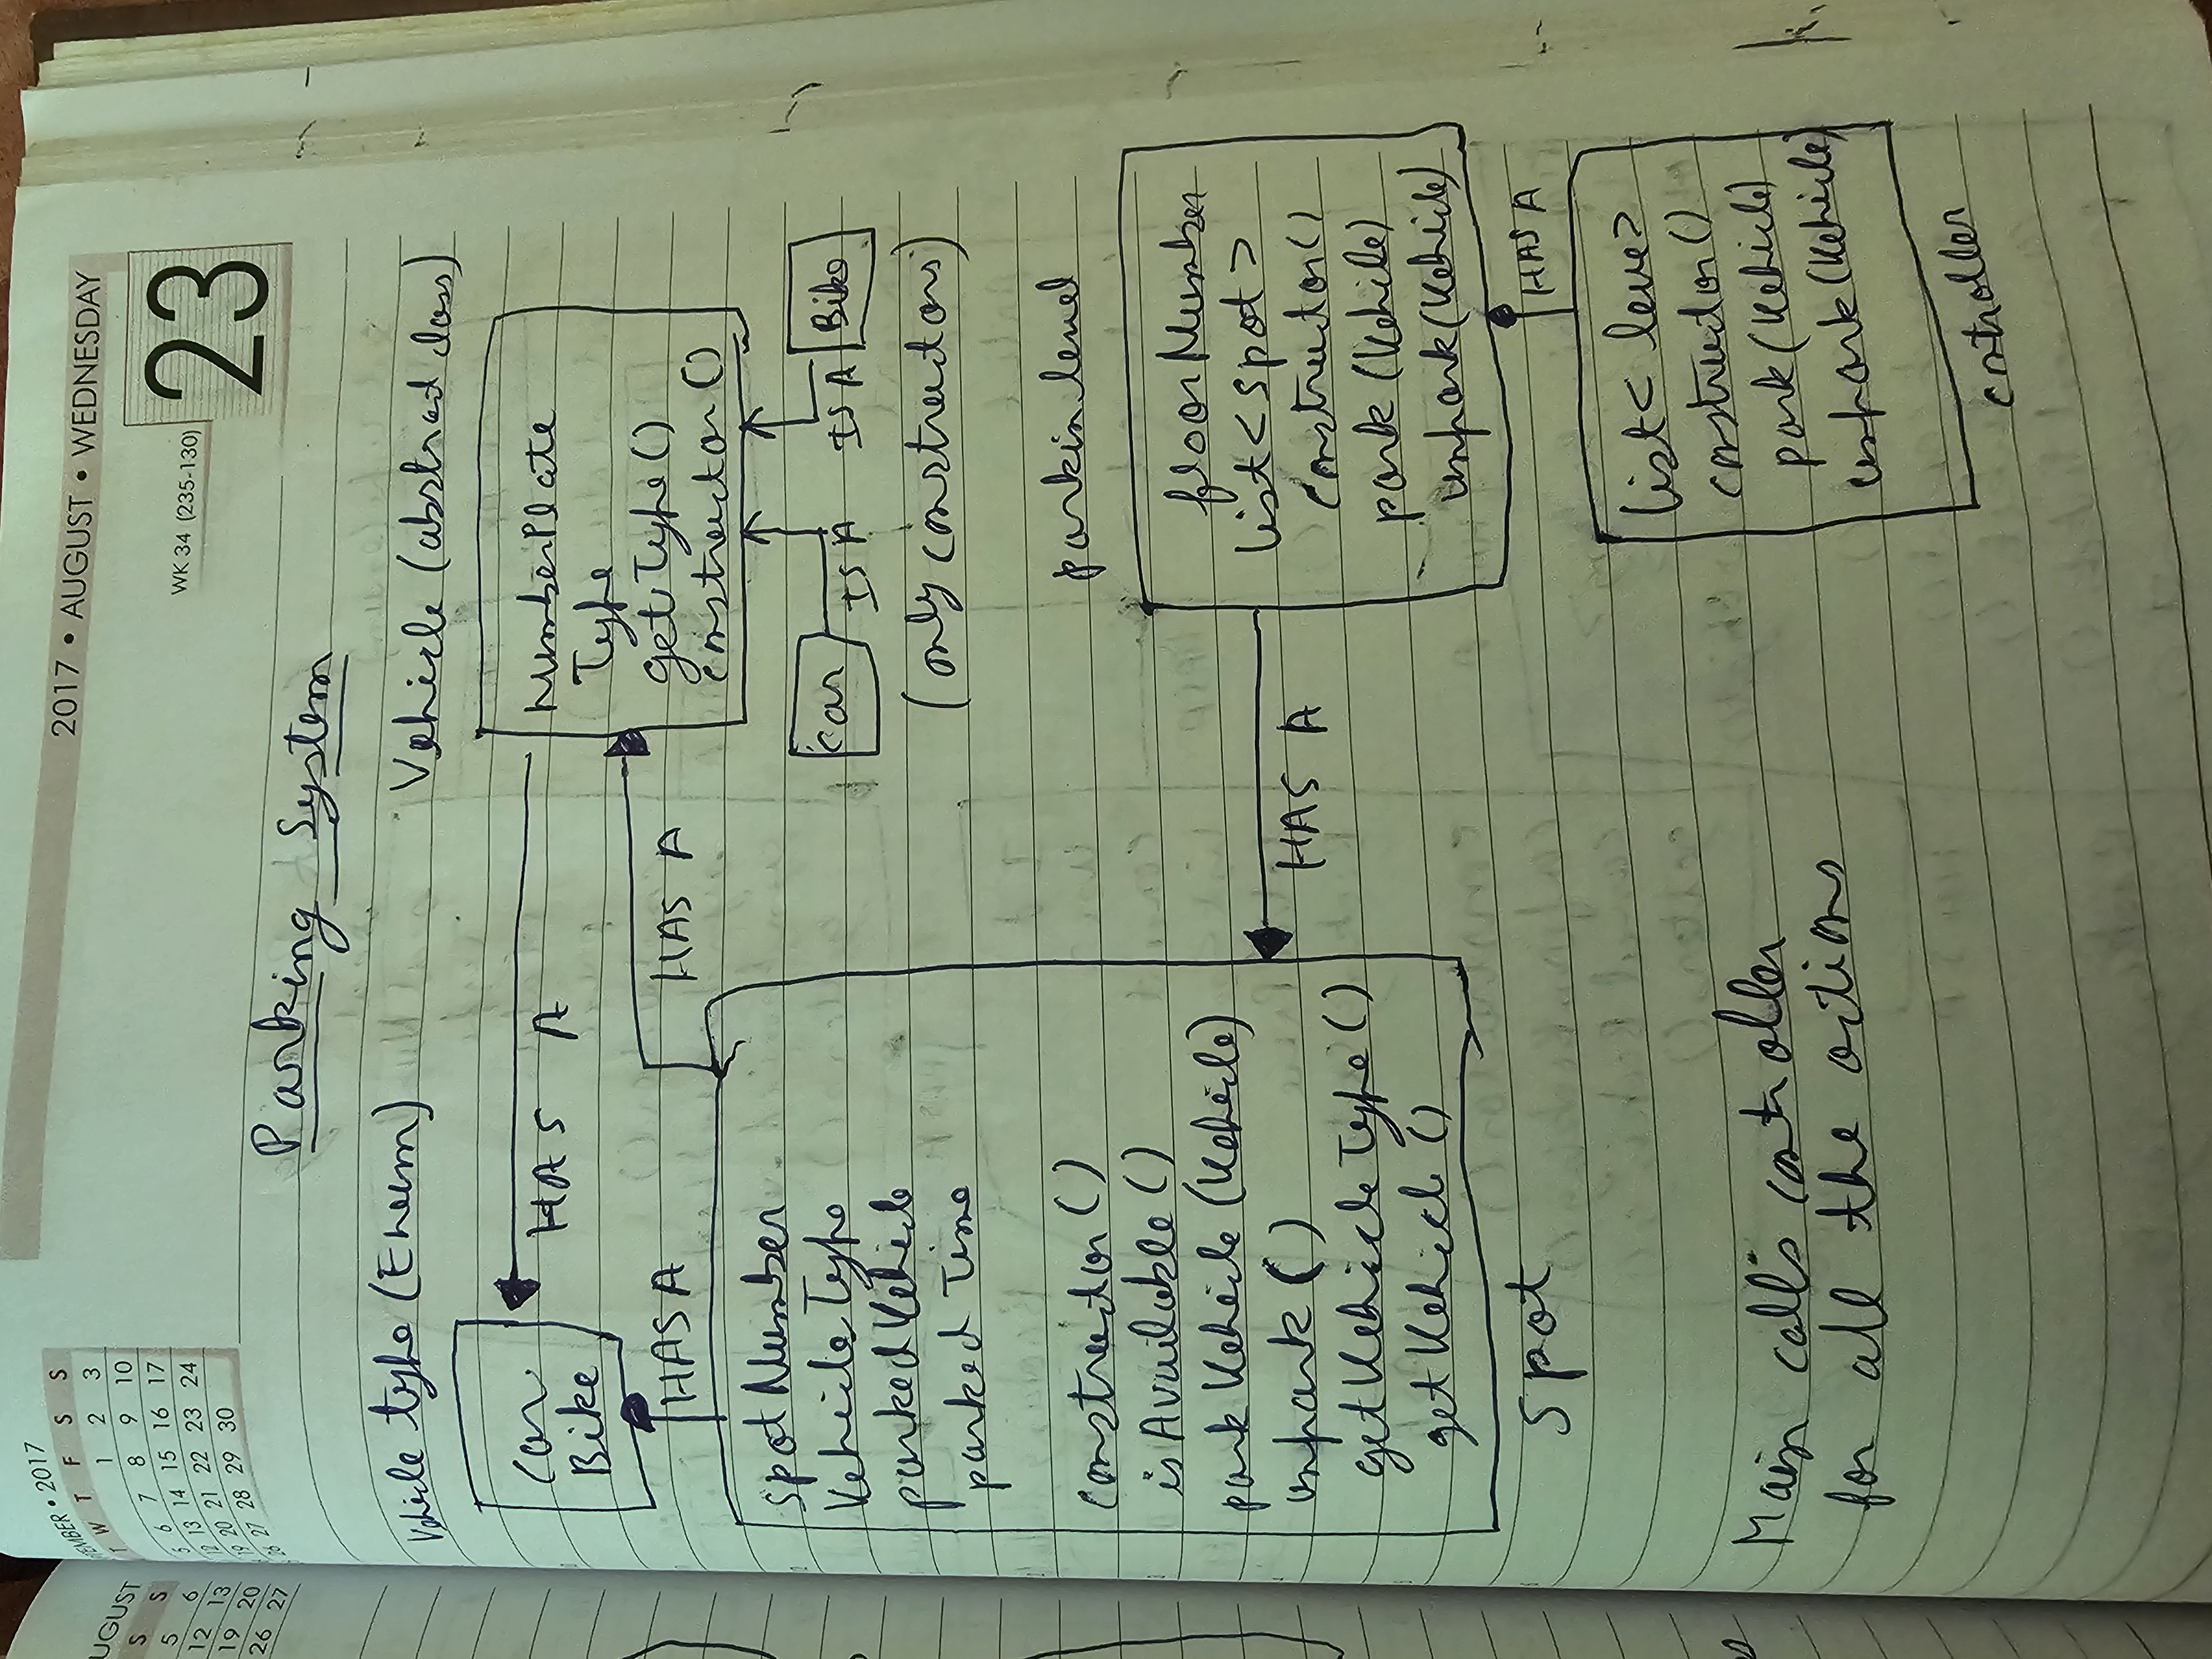 UGUST
S S
5 6
12 13
19 20
26 27
TEMBER • 2017
T W T F S S
1 2 3
5 6 7 8 9 10
12 13 14 15 16 17
19 20 21 22 23 24
26 27 28 29 30
2017 • AUGUST • WEDNESDAY
WK 34 (235-130)
23
Parking System
Vehicle type (Enum)
Car
Bike
HAS A
Vehicle (abstract class)
NumberPlate
Type
getType()
constructor()
HAS A
HAS A
Car
IS A
IS A
Bike
(only constructors)
spotNumber
VehicleType
parkedVehicle
parked Time
constructor()
isAvailable()
park Vehicle (Vehicle)
unpark()
getVehicleType()
getVehicle()
Spot
HAS A
parkin level
floorNumber
list<spot>
constructor()
park (Vehicle)
unpark(Vehicle)
HAS A
list< leve>
constructor()
park(Vehicle)
unpark(Vehicle)
controller
Main calls controller
for all the actions